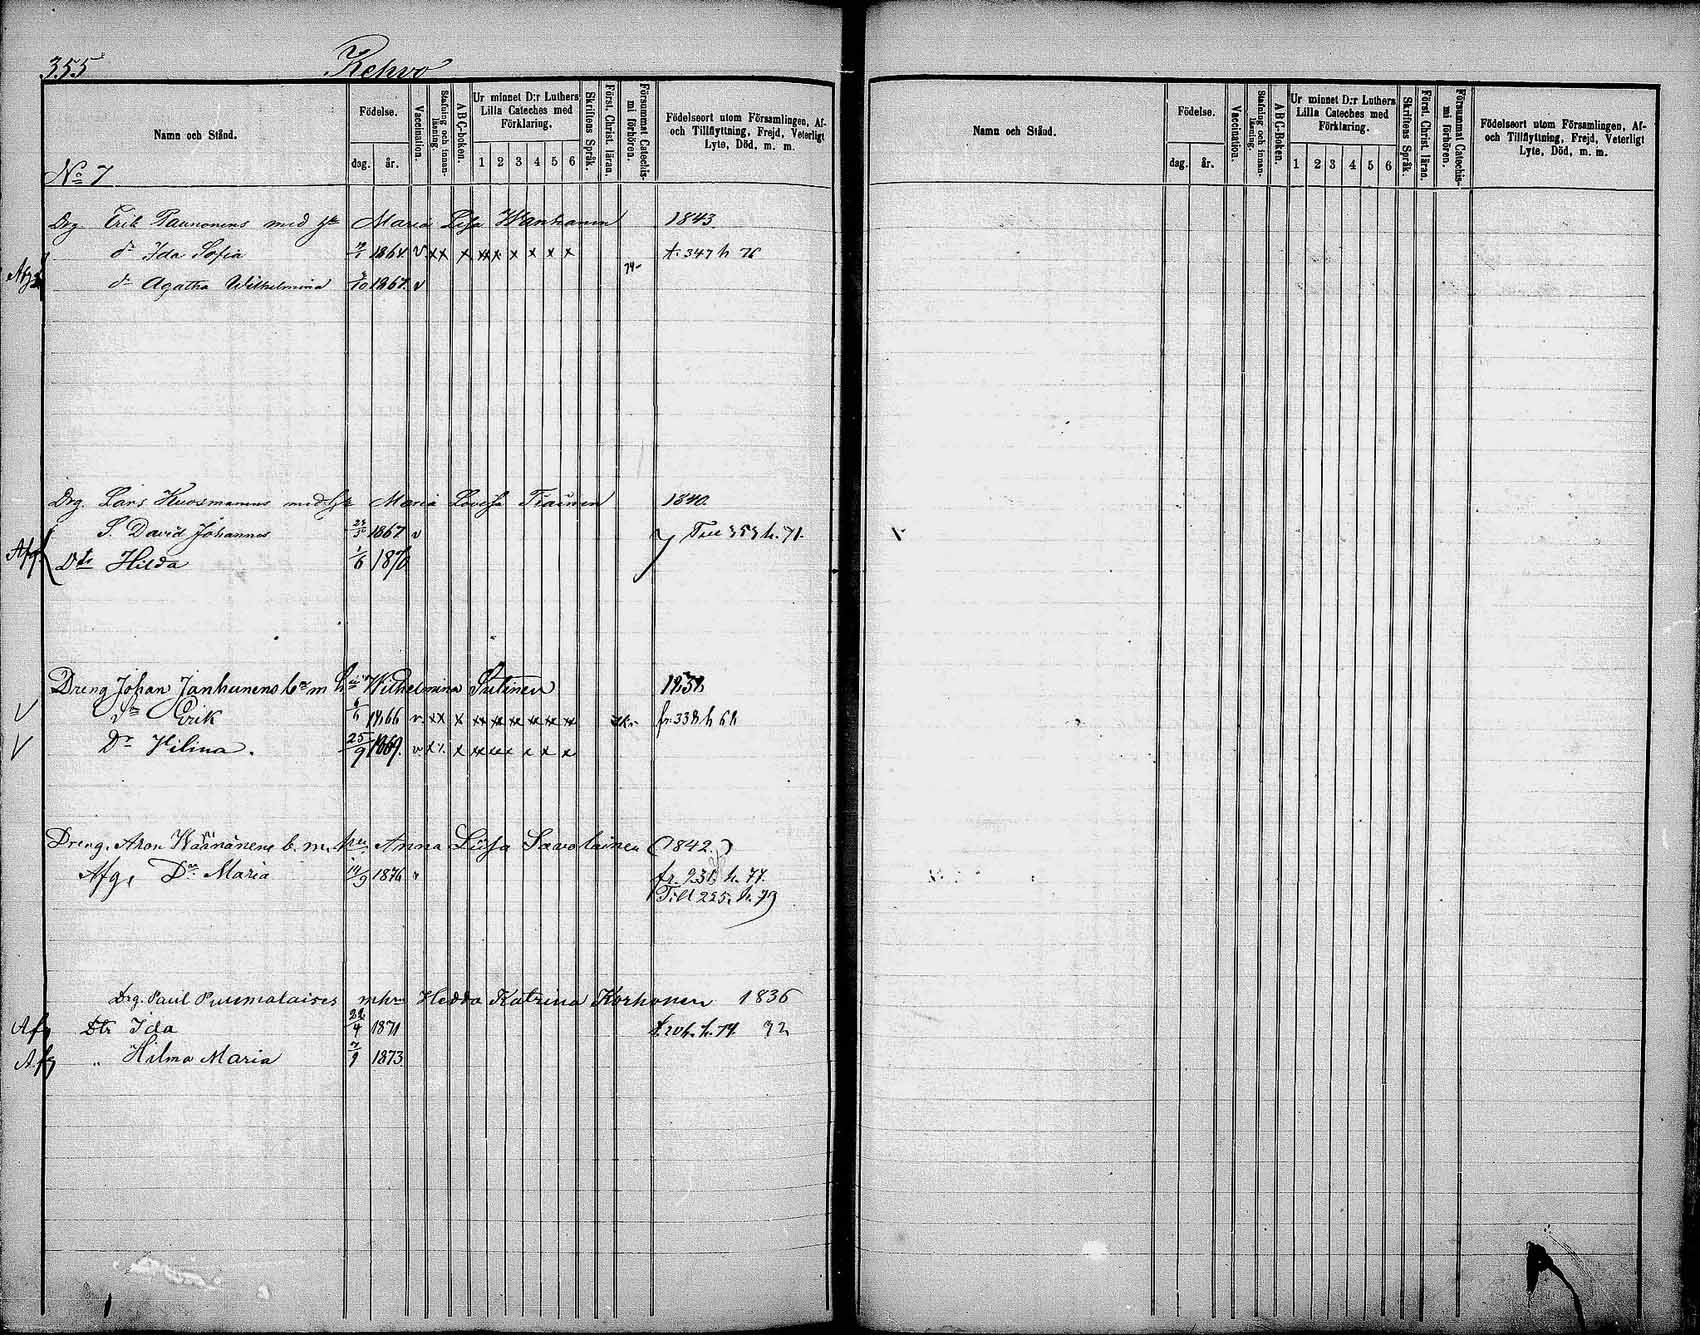 355 Kehvo
Namn och Stånd.
Födelse.
dag. år.
Vaccination.
Stafning och innanläsning.
ABC-boken.
Ur minnet D:r Luthers Lilla Cateches med Förklaring.
1 2 3 4 5 6
Skriftens Språk.
Först. Christ. läran.
Försummat Catechismi förhören.
Födelseort utom Församlingen, Af- och Tillflyttning, Frejd, Veterligt Lyte, Död, m. m.
No 7
Drg. Erik Paunonens med h Maria Lisa Wanhanen 1843.
dr Ida Sofia 1864 v xx x xx x x x x x t. 347 h 76
Afg dr Agatha Wilhelmina 1867 v
Drg. Lars Kuosmanens med h Maria Lovisa Tiainen 1840.
S. David Johannes 1867 v Till 353 h. 71.
Afg. Dtr Hilda 1/6 1870
Dreng Johan Janhunens b. m. h Wilhelmina Sutinen 1838
Erik 1866 v. xx x xx x x x x x fr. 338 h 68
Dr Hilina. 25/9 1869. v x x. x x x x x x x
Dreng. Aron Wäänänens b. m. h Anna Liisa Savolainen (1842.)
Afg. Dr Maria 1876 v fr. 231. h. 77.
Till 225. h. 79
Drg. Paul Puumalaises mhu Hedda Katrina Korhonen 1836
Afg Dtr Ida 1871
Afg " Hilma Maria 1873
Namn och Stånd.
Födelse.
dag. år.
Vaccination.
Stafning och innanläsning.
ABC-boken.
Ur minnet D:r Luthers Lilla Cateches med Förklaring.
1 2 3 4 5 6
Skriftens Språk.
Först. Christ. läran.
Försummat Catechismi förhören.
Födelseort utom Församlingen, Af- och Tillflyttning, Frejd, Veterligt Lyte, Död, m. m.